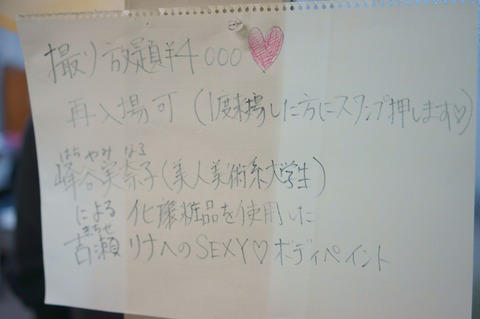 撮り放題¥4000
再入場可(1度来場した方にスタンプ押します♡)
はちやみなこ
峰谷実奈子(美人美術系大学生)
による化粧品を使用した
古瀬リナへのSEXY♡ボディペイント